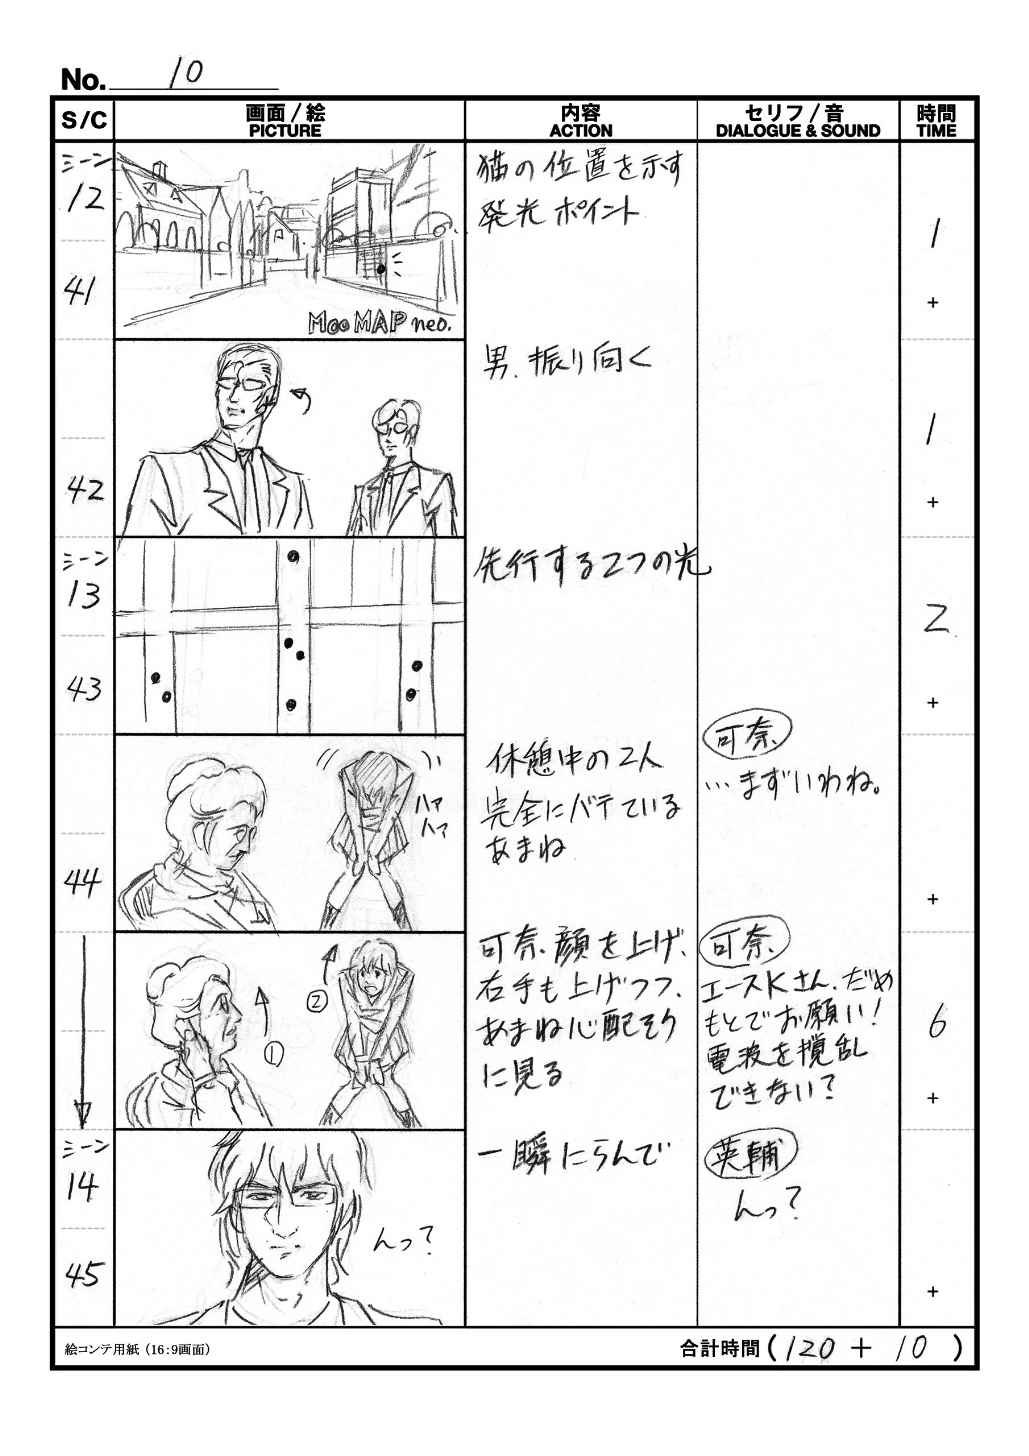 No. 10
S/C
画面/絵
PICTURE
内容
ACTION
セリフ/音
DIALOGUE & SOUND
時間
TIME
シーン
12
41
Moo MAP neo.
猫の位置を示す
発光ポイント
1
+
42
男、振り向く
1
+
シーン
13
43
先行する2つの光
2
+
44
ハァ
ハァ
休憩中の2人
完全にバテている
あまね
可奈
…まずいわね。
+
①
②
可奈、顔を上げ、
右手も上げつつ、
あまね心配そう
に見る
可奈
エースKさん、だめ
もとでお願い!
電波を撹乱
できない?
6
+
シーン
14
45
んっ?
一瞬にらんで
英輔
んっ?
+
絵コンテ用紙（16:9画面）
合計時間 ( 120 + 10 )